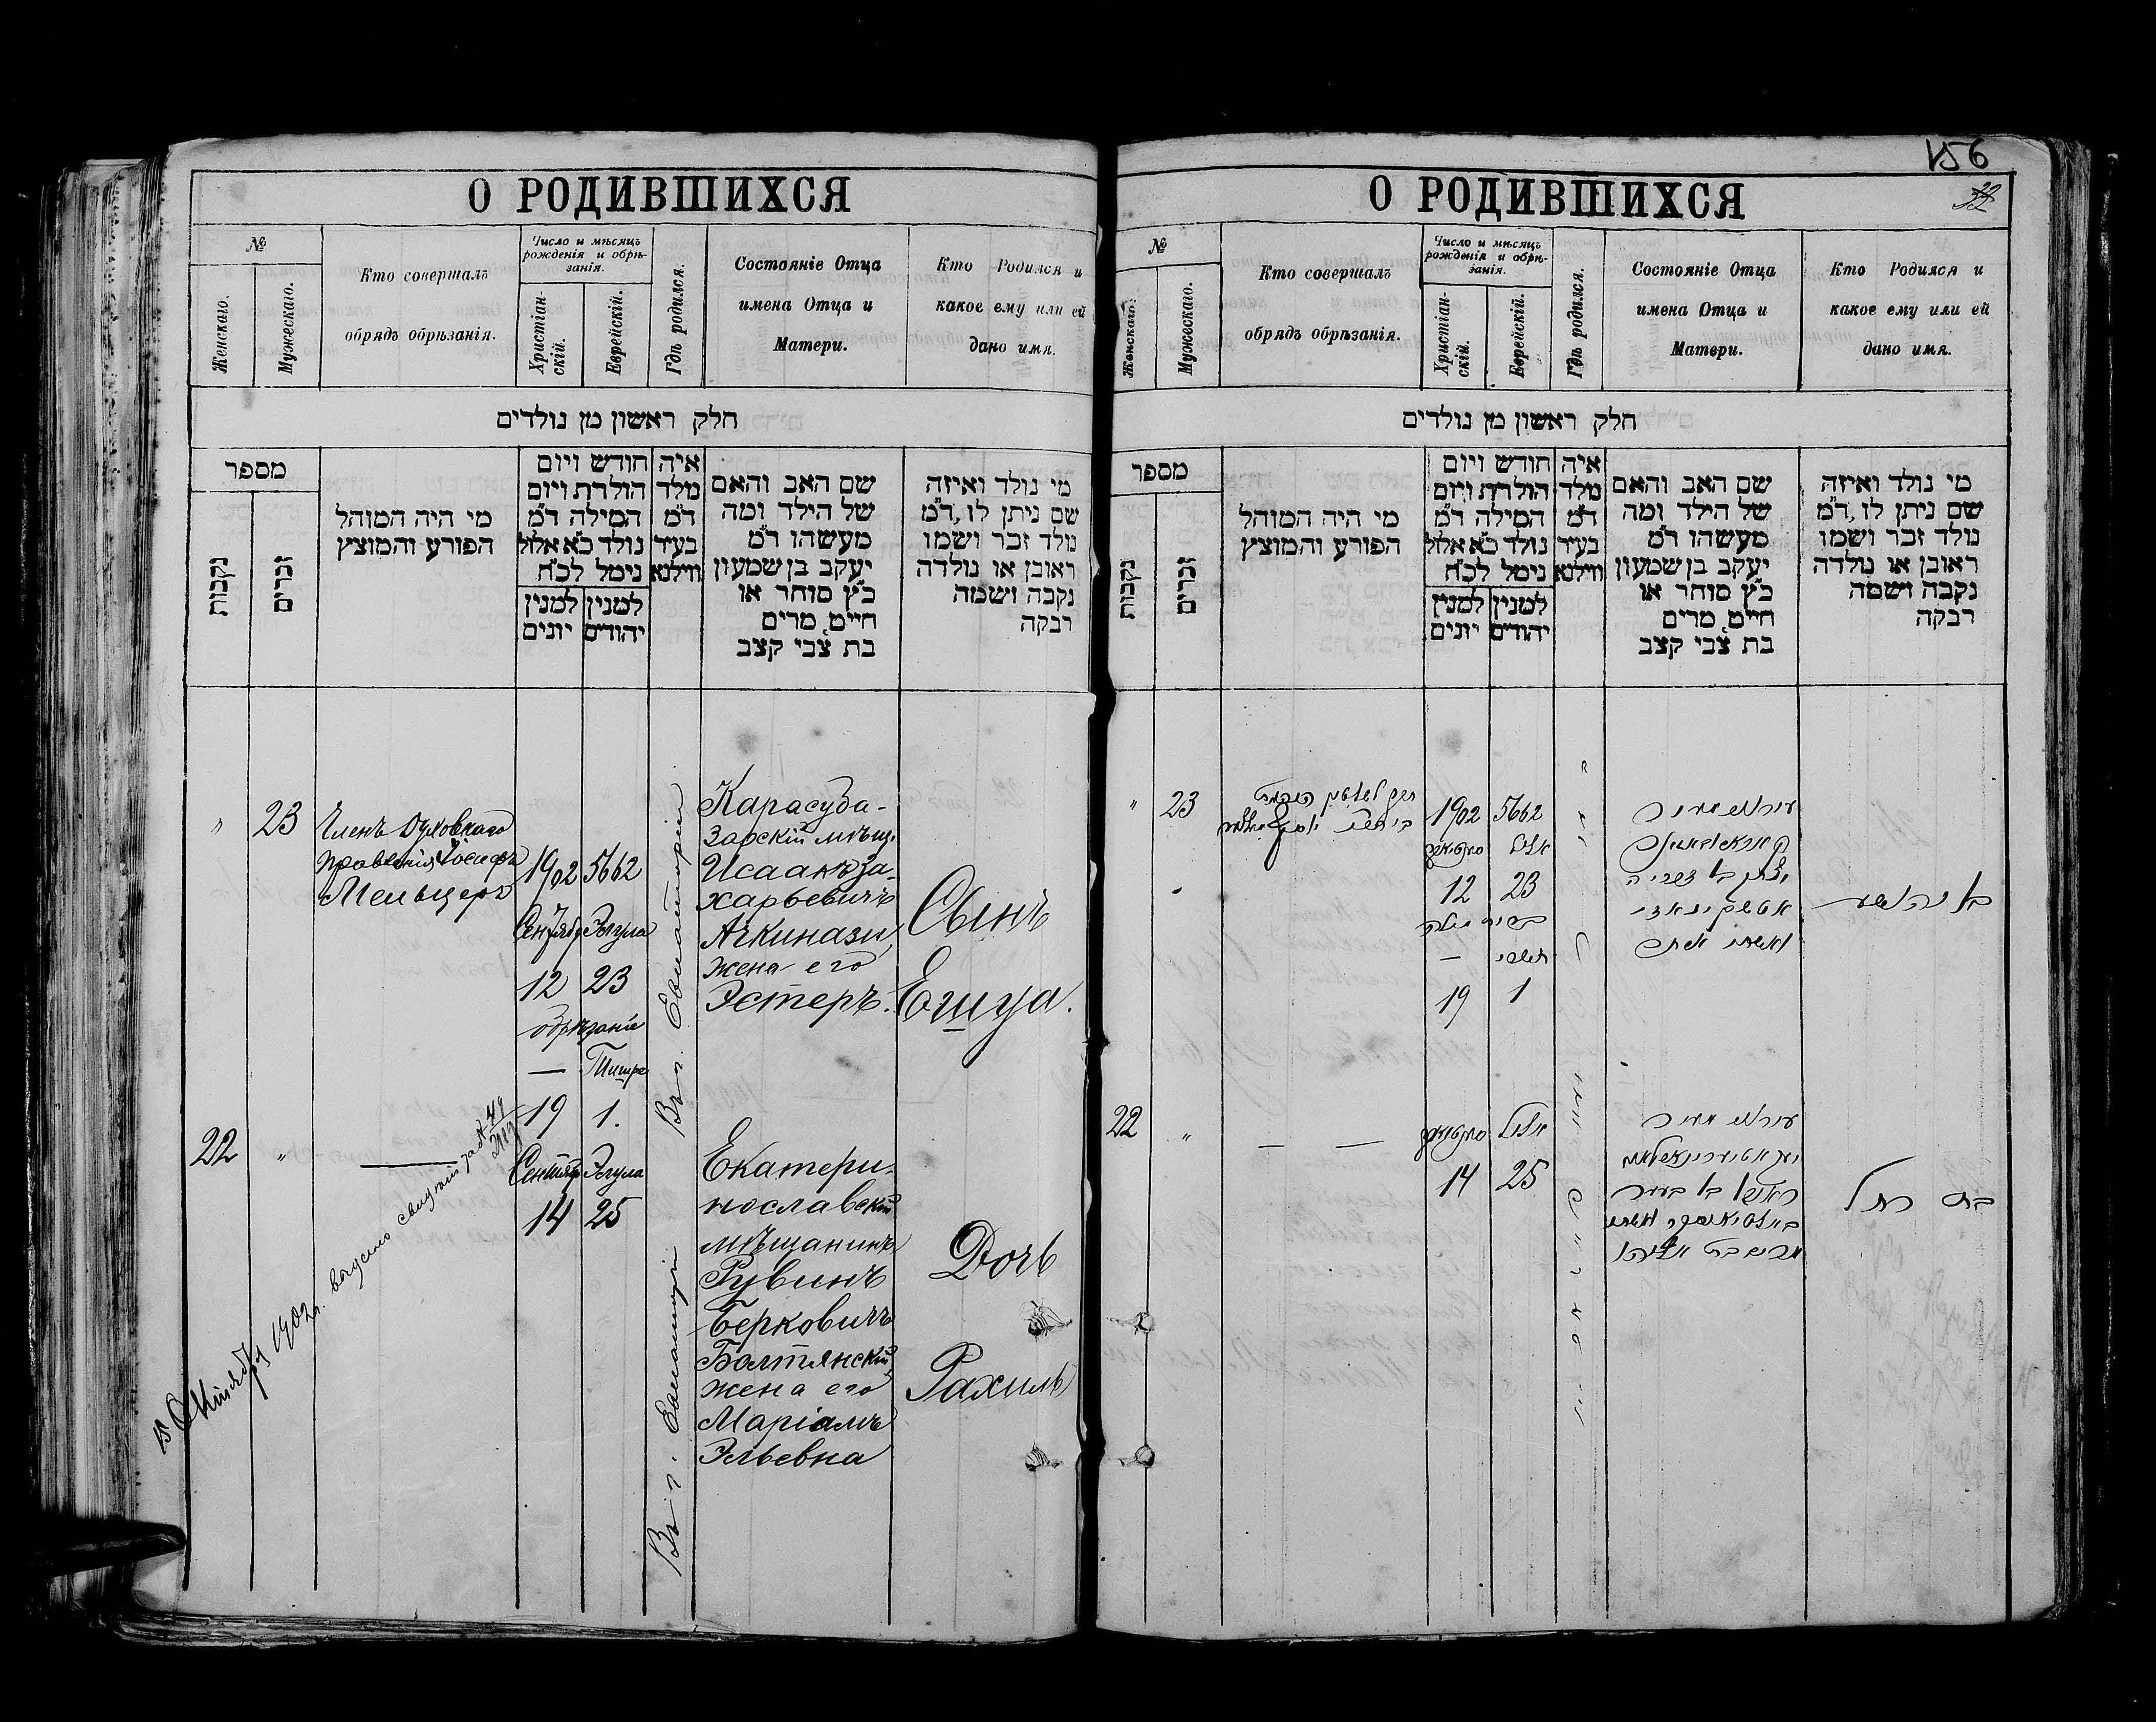 О РОДИВШИХСЯ
№
Женскаго.
Мужескаго.
Кто совершалъ
обрядъ обрѣзанія.
Число и мѣсяцъ
рожденія и обрѣ-
занія.
Христіан-
скій.
Еврейскій.
Гдѣ родился.
Состояніе Отца
имена Отца и
Матери.
Кто Родился и
какое ему или ей
дано имя.
חלק ראשון מן נולדים
מספר
נקבות
זכרים
מי היה המוהל
הפורע והמוצץ
חודש ויום
הולדת ויום
המילה ד"מ
נולד כ"א אלול
נימל לכ"ח
למנין
יהודים
למנין
יונים
איה
מלד
ד"מ
בעיר
ווילנא
שם האב והאם
של הילד ומה
מעשהו ד"מ
יעקב בן שמעון
כ"ץ סוחר או
חייט, מרים
בת צבי קצב
מי נולד ואיזה
שם ניתן לו, ד"מ
נולד זכר ושמו
ראובן או נולדה
נקבה ושמה
רבקה
" 23
Членъ Духовнаго
правленія Іосифъ
Мельцеръ
1902 5662
Сентяб Элула
12 23
обрѣзаніе
— Тишре
19 1.
Въ г. Евпаторіи
Карасуба-
зарскій мѣщ.
Исаакъ За-
харьевичъ
Ачкинази
жена его
Эстеръ.
Сынъ
Ешуа.
22 "
—
Сентяб Элула
14 25
Въ г. Евпаторіи
Екатери-
нославскій
мѣщанинъ
Рувинъ
Берковичъ
Болтянскій
жена его
Маріамъ
Эльевна
Дочь
Рахиль
15 Октября 1902 г.
156
О РОДИВШИХСЯ
№
Женскаго.
Мужескаго.
Кто совершалъ
обрядъ обрѣзанія.
Число и мѣсяцъ
рожденія и обрѣ-
занія.
Христіан-
скій.
Еврейскій.
Гдѣ родился.
Состояніе Отца
имена Отца и
Матери.
Кто Родился и
какое ему или ей
дано имя.
חלק ראשון מן נולדים
מספר
נקבות
זכרים
מי היה המוהל
הפורע והמוצץ
חודש ויום
הולדת ויום
המילה ד"מ
נולד כ"א אלול
נימל לכ"ח
למנין
יהודים
למנין
יונים
איה
מלד
ד"מ
בעיר
ווילנא
שם האב והאם
של הילד ומה
מעשהו ד"מ
יעקב בן שמעון
כ"ץ סוחר או
חייט, מרים
בת צבי קצב
מי נולד ואיזה
שם ניתן לו, ד"מ
נולד זכר ושמו
ראובן או נולדה
נקבה ושמה
רבקה
" 23
1902 5662
אלול
12 23
— תשרי
19 1
בן יהושע
22 "
— —
אלול
14 25
בת רחל